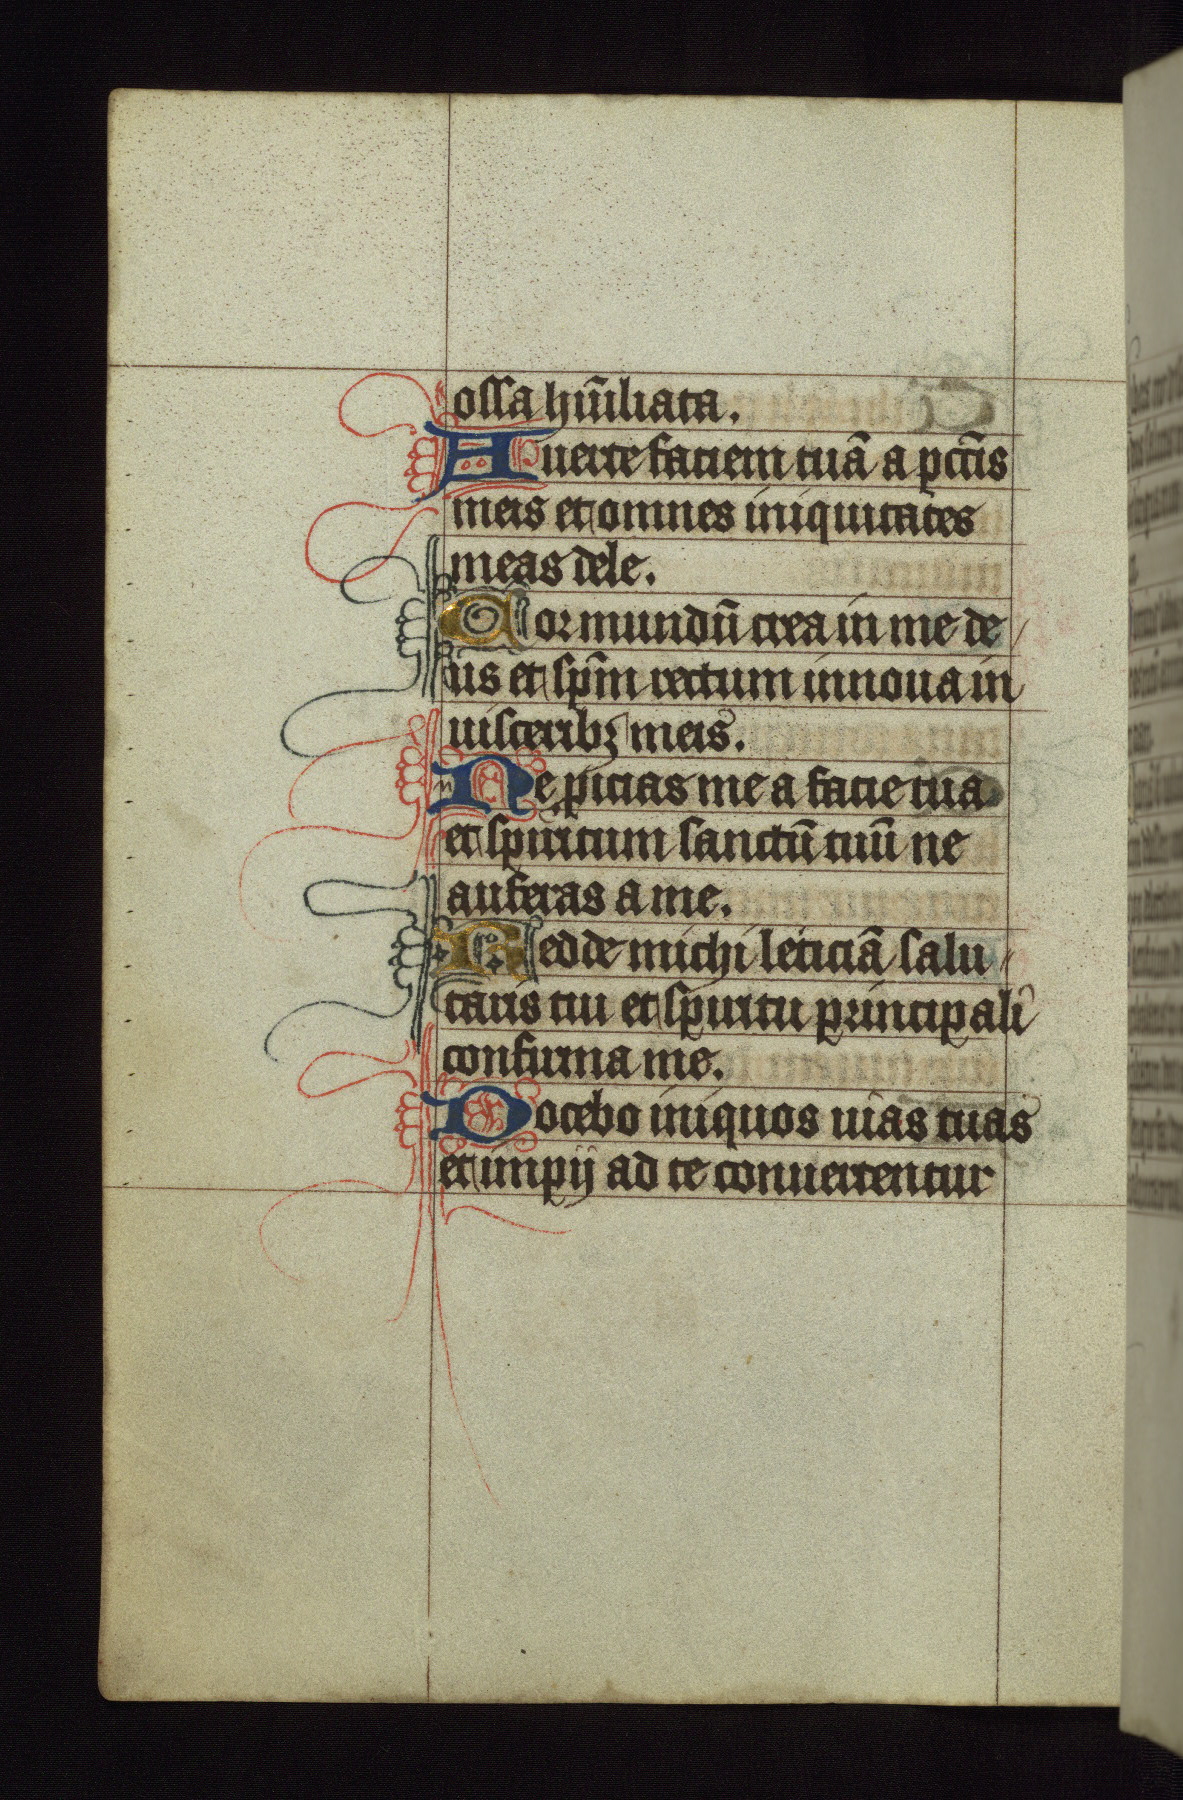 ossa hūiliata.
Auerte faciem tuā a pctīs
meis et omnes iniquitates
meas dele.
Cor mundū crea in me de
us et spm̄ rectum innoua in
uisceribꝫ meis.
Ne ꝓicias me a facie tua
et spiritum sanctū tuū ne
auferas a me.
Redde michi leticiā salu
taris tui et spiritu principali
confirma me.
Docebo iniquos uias tuas
et impij ad te conuertentur